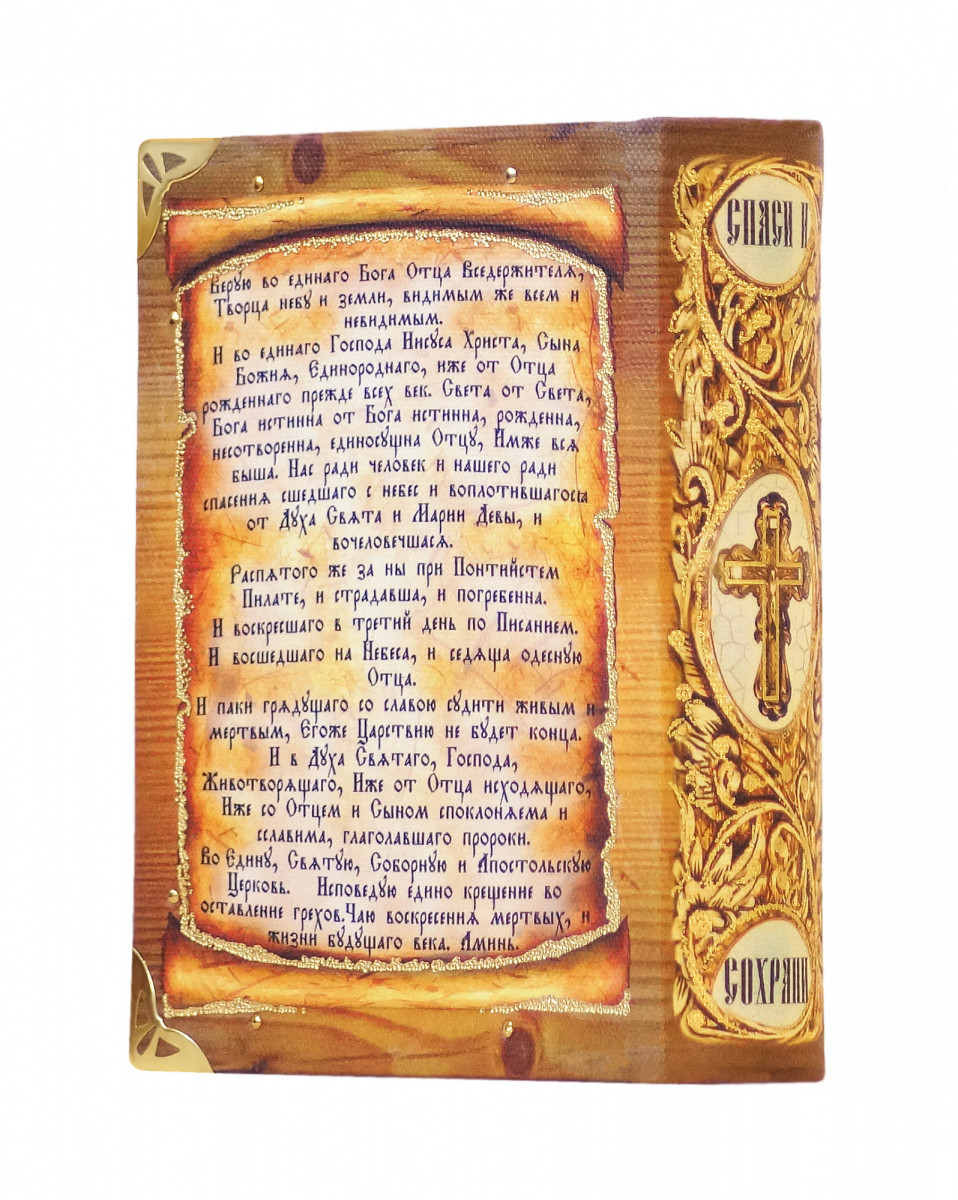 Верую во единаго Бога Отца Вседержителя,
Творца небу и земли, видимым же всем и
невидимым.
И во единаго Господа Иисуса Христа, Сына
Божия, Единороднаго, иже от Отца
рожденнаго прежде всех век. Света от Света,
Бога истинна от Бога истинна, рожденна,
несотворенна, единосущна Отцу, Имже вся
быша. Нас ради человек и нашего ради
спасения сшедшаго с небес и воплотившагося
от Духа Свята и Марии Девы, и
вочеловечшася.
Распятого же за ны при Понтийстем
Пилате, и страдавша, и погребенна.
И воскресшаго в третий день по Писанием.
И восшедшаго на Небеса, и седяща одесную
Отца.
И паки грядущаго со славою судити живым и
мертвым, Егоже Царствию не будет конца.
И в Духа Святаго, Господа,
Животворящаго, Иже от Отца исходящаго,
Иже со Отцем и Сыном споклоняема и
сславима, глаголавшаго пророки.
Во Едину, Святую, Соборную и Апостольскую
Церковь. Исповедую едино крещение во
оставление грехов.Чаю воскресения мертвых, и
жизни будущаго века. Аминь.
СПАСИ И
СОХРАНИ